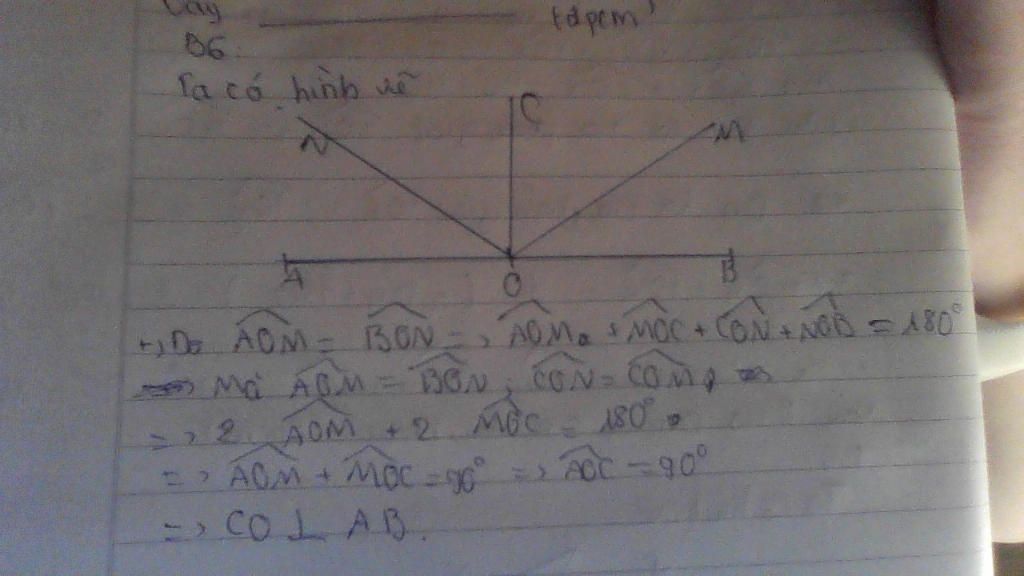 Vậy (đpcm)
B6.
Ta có hình vẽ
C
N M
A O B
+, Do AOM = BON => AOM + MOC + CON + NOB = 180°
Mà AOM = BON ; CON = COM
=> 2 AOM + 2 MOC = 180°
=> AOM + MOC = 90° => AOC = 90°
=> CO ⊥ AB.